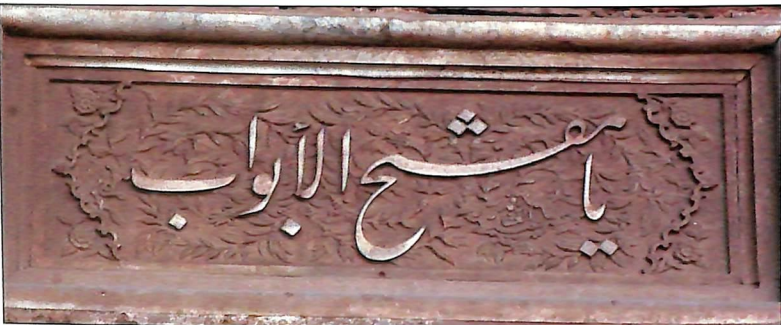 يا مفتح الأبواب